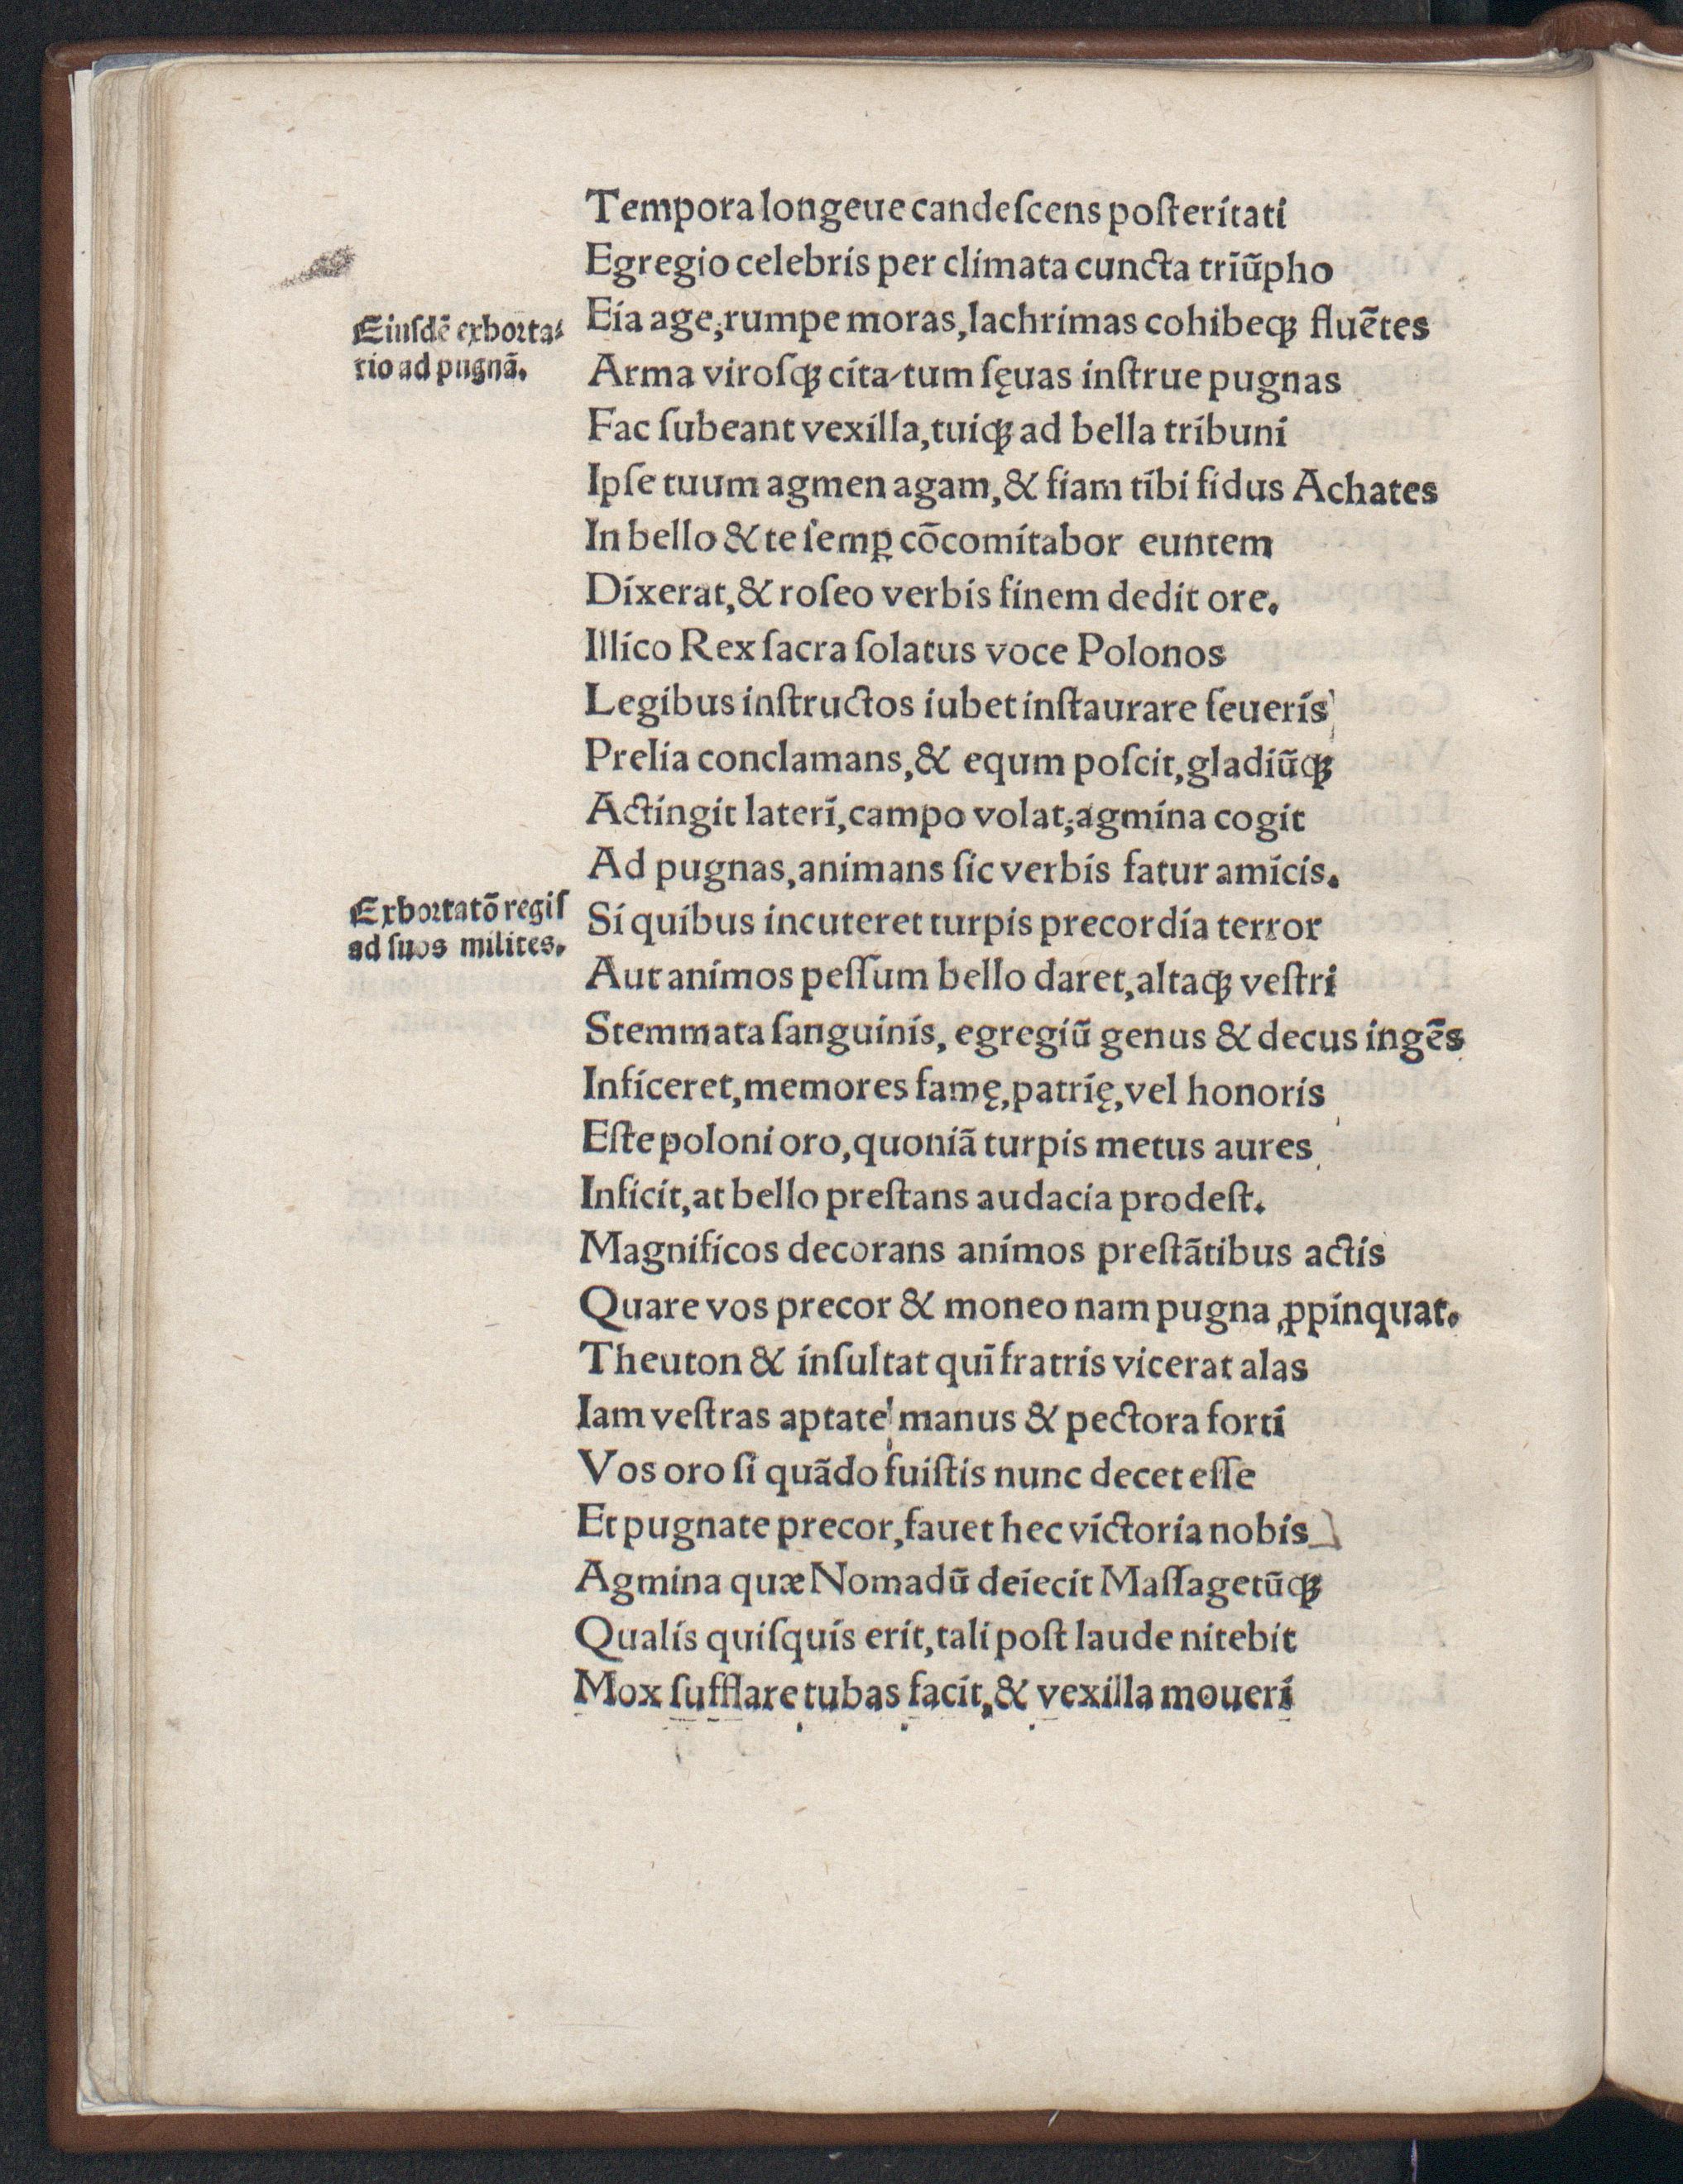 Tempora longeue candeſcens poſteritati
Egregio celebris per climata cuncta triūpho
Eiuſdē exhorta⸗
tio ad pugnā.
Eia age, rumpe moras, lachrimas cohibeqꝫ fluētes
Arma viroſqꝫ cita-tum ſęuas inſtrue pugnas
Fac ſubeant vexilla, tuiqꝫ ad bella tribuni
Ipſe tuum agmen agam, & fiam tibi fidus Achates
In bello & te ſemꝑ cōcomitabor euntem
Dixerat, & roſeo verbis finem dedit ore.
Illico Rex ſacra ſolatus voce Polonos
Legibus inſtructos iubet inſtaurare ſeueris
Prelia conclamans, & equm poſcit, gladiūqꝫ
Actingit lateri, campo volat, agmina cogit
Ad pugnas, animans ſic verbis fatur amicis.
Exhortatō regiſ
ad ſuos milites.
Si quibus incuteret turpis precordia terror
Aut animos peſſum bello daret, altaqꝫ veſtri
Stemmata ſanguinis, egregiū genus & decus ingēs
Inficeret, memores famę, patrię, vel honoris
Eſte poloni oro, quoniā turpis metus aures
Inficit, at bello preſtans audacia prodeſt.
Magnificos decorans animos preſtātibus actis
Quare vos precor & moneo nam pugna ꝓpinquat.
Theuton & inſultat qui fratris vicerat alas
Iam veſtras aptate manus & pectora forti
Vos oro ſi quādo fuiſtis nunc decet eſſe
Et pugnate precor, fauet hec victoria nobis
Agmina quæ Nomadū deiecit Maſſagetūqꝫ
Qualis quiſquis erit, tali poſt laude nitebit
Mox ſufflare tubas facit, & vexilla moueri